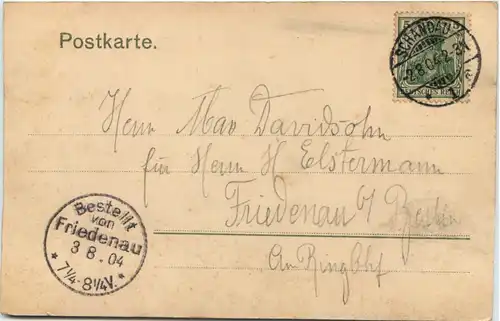 Postkarte.
SCHANDAU
2.8.04.2-3N
DEUTSCHES REICH
* 1 c
Herrn Max Davidsohn
für Herrn H Elstermann
Friedenau b/ Berlin
Am Ring Bhf
Bestellt
von
Friedenau
3 8.04
* 7¼-8¼V. *